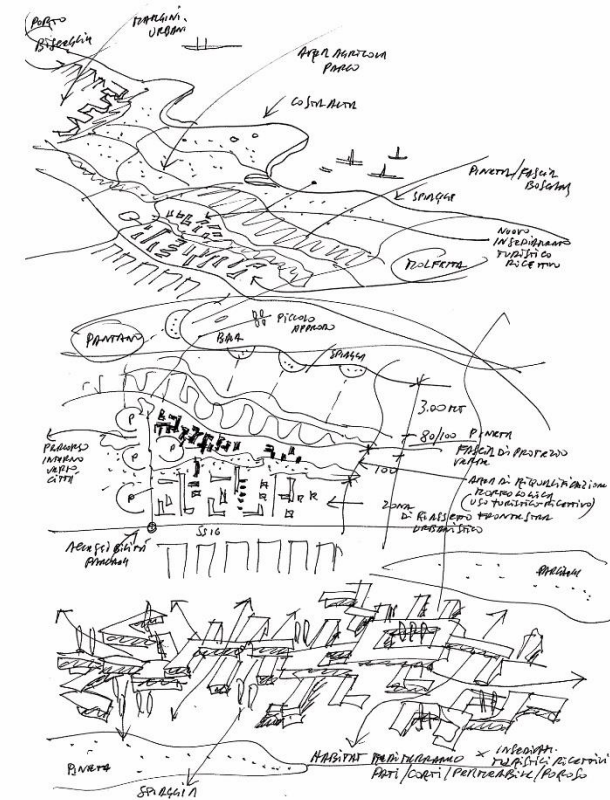 PORTO
BISCEGLIE
MARGINI
URBANI
AREA AGRICOLA
PARCO
COSTA ALTA
PINETA/FASCIA
BOSCATA
SPIAGGE
NUOVO
INSEDIAMENTO
TURISTICO
RICETTIVO
MOLFETTA
PANTANO
BAIA
PICCOLO
APPRODO
SPIAGGE
3.00 MT
80/100 PINETA
FASCIA DI PROTEZIO
VERDE
100
AREA DI RIQUALIFICAZIONE
MORFOLOGICA
(USO TURISTICO RICETTIVO)
P
P
P
P
PERCORSO
INTERNO
VERSO
CITTÀ
ZONA
DI RIASSETTO FRONTESTRA
URBANISTICO
SS16
ACCESSIBILITÀ
PARCHEGGI
PINETA
SPIAGGIA
HABITAT MEDITERRANEO × INSEDIAM.
TURISTICI RICETTIVI
PATI/CORTI/PERMEABILE/POROSO